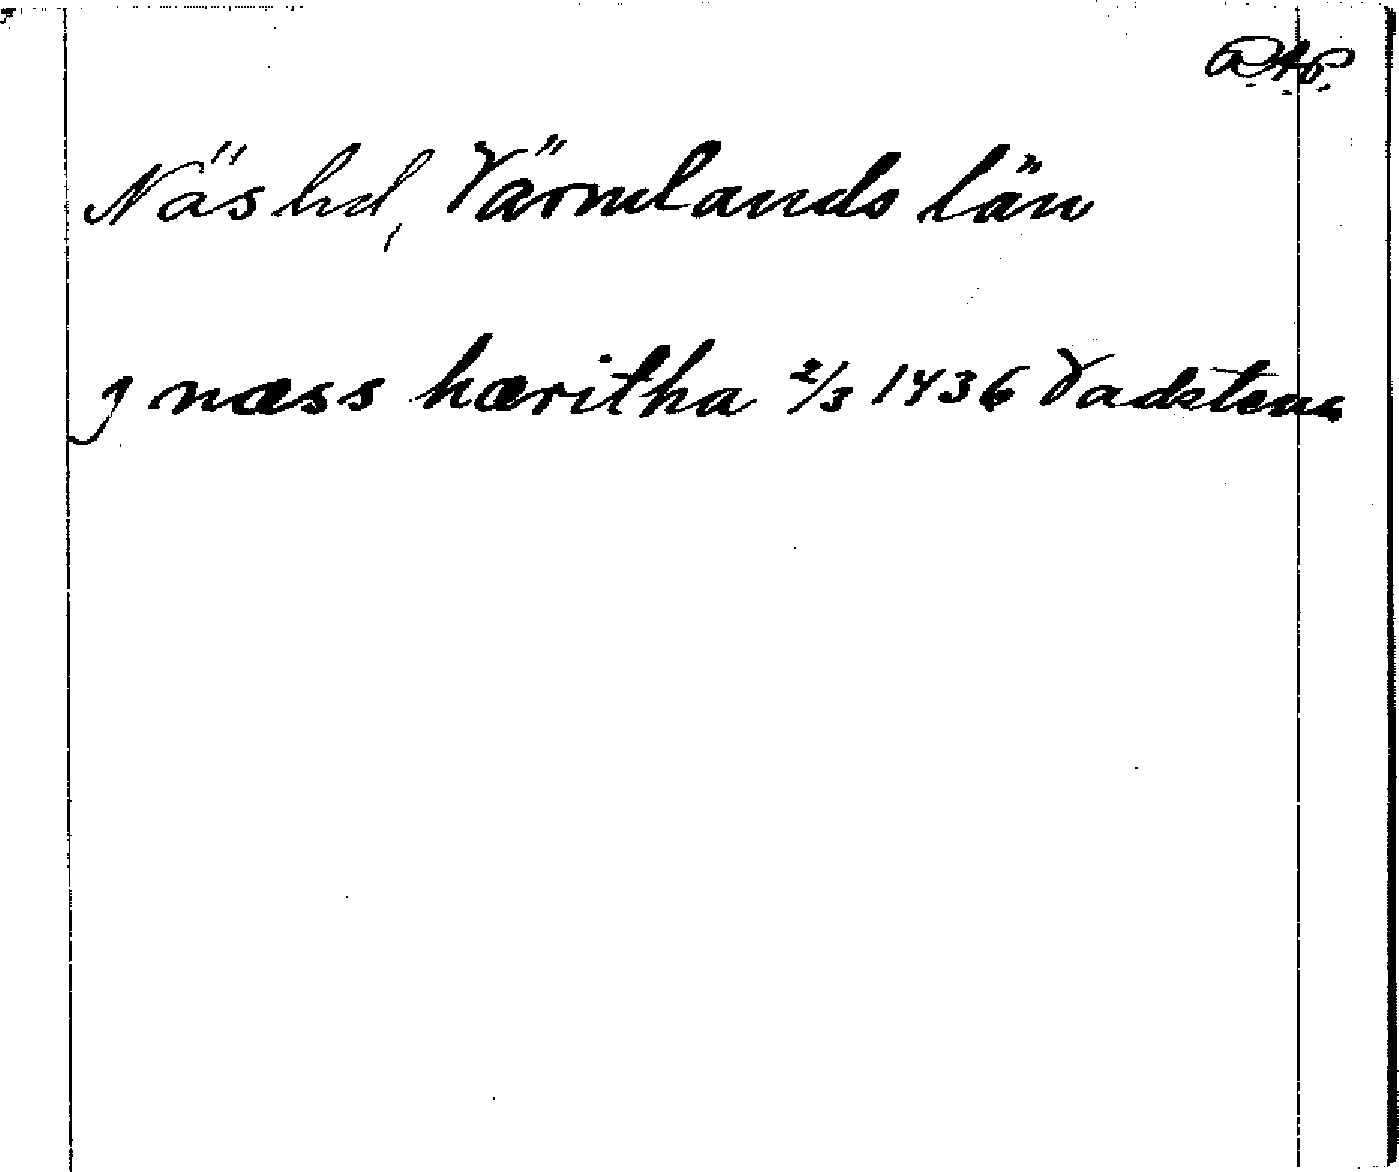 RAp.
Näs hd, Värmlands län
j næss hæritha 2/3 1436 Vadstena